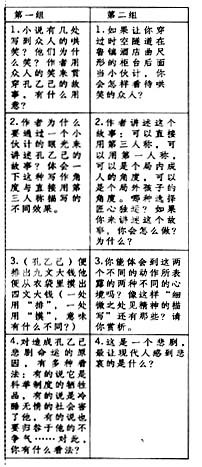 第一组
第二组
1.小说有几处
写到众人的哄
笑?他们为什
么笑?作者用
众人的笑来贯
穿孔乙己的故
事,有什么用
意?
1.如果让你穿
过时空隧道在
鲁镇酒店曲尺
形的柜台后面
当小伙计,你
会怎样看待哄
笑的众人?
2.作者为什么
要通过一个小
伙计的眼光来
讲述孔乙己的
故事?体会一
下这种写作角
度与直接用第
三人称描写的
不同效果。
2.作者讲述这个
故事:可以直接
用第三人称,可
以用第一人称,
可以是个局内成
人的角度,可以
是个局外孩子的
角度。哪种选择
匠心独运?如果
你来讲述这个故
事,你会怎么做?
为什么?
3.(孔乙己)便
排出九文大钱他
便从衣袋里摸出
四文大钱(一处
用“排”,一处
用“摸”,意味
有什么不同?)
3.你能体会到这两
个不同的动作所表
露的两种不同的心
境吗?像这样“细
微之处见精神的描
写”还有那些?请
你赏析。
4.对造成孔乙己
悲剧命运的原
因,有多种看
法:有的说它是
科举制度的牺牲
品,有的说是冷
睡无情的社会害
了他,有的说也
要归咎于他的不
争气……对此,
你有什么看法?
4.这是一个悲剧,
最让现代人感到悲
哀的是什么?